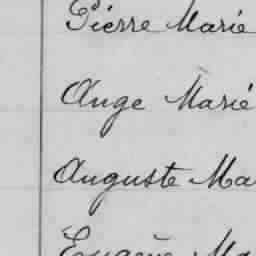 Pierre Marie
Ange Marie
Auguste Ma
Eugène Ma